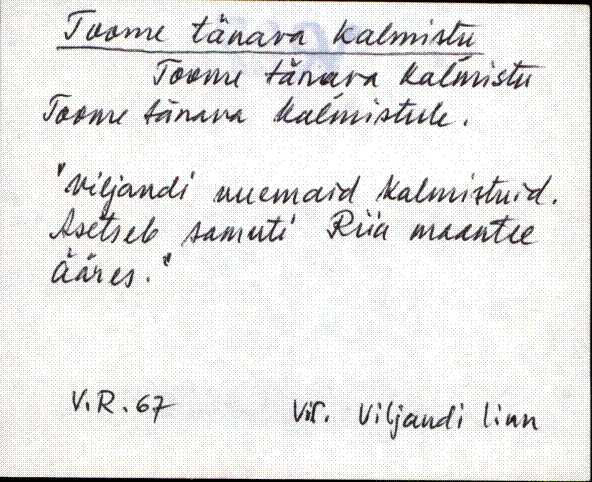 Toome tänava kalmistu
Toome tänava kalmistu
Toome tänava kalmistule.
"Viljandi uuemaid kalmistuid.
Asetseb samuti Riia maantee
ääres."
V.R. 67
Vil. Viljandi linn